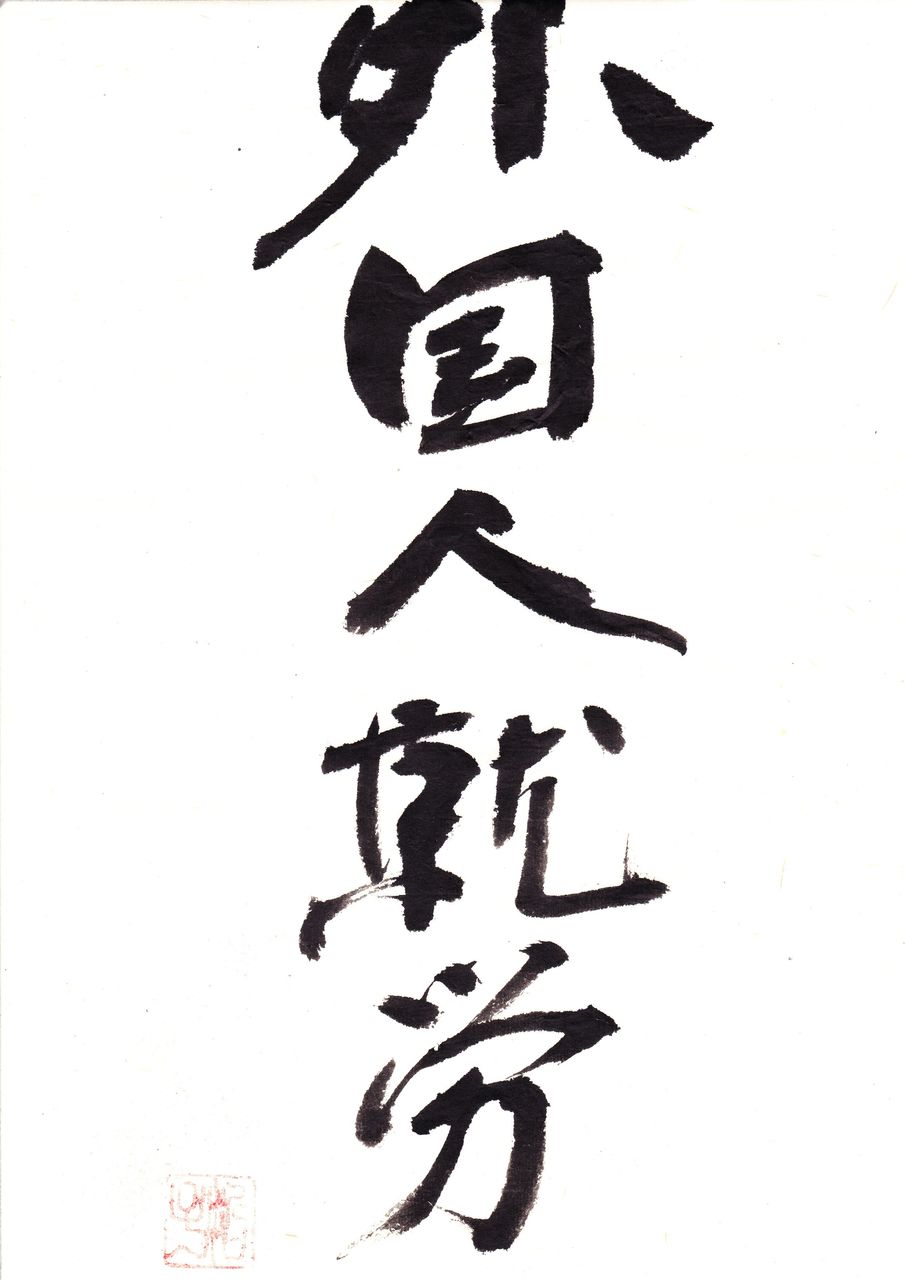 外国人就労